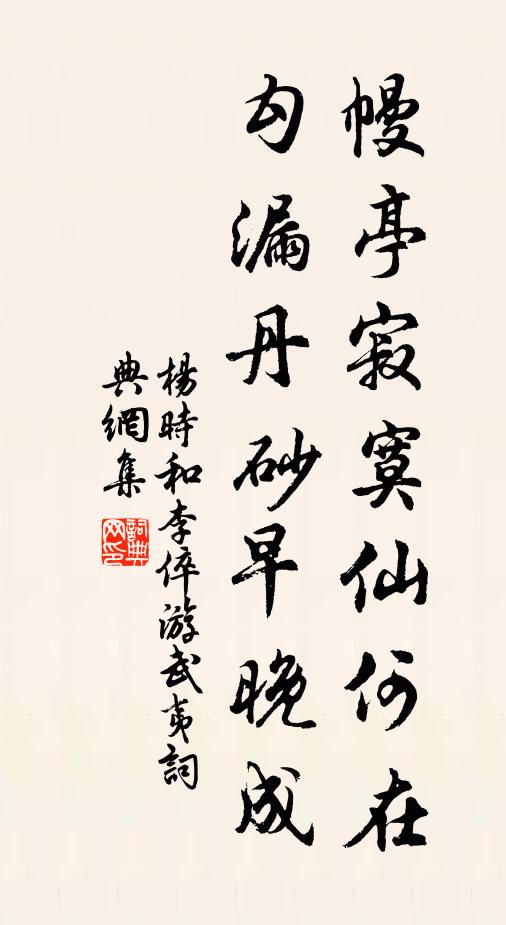 幔亭寂寞仙何在
勾漏丹砂早晚成
楊時和李倅游武夷詞
典網集
詞典
网印